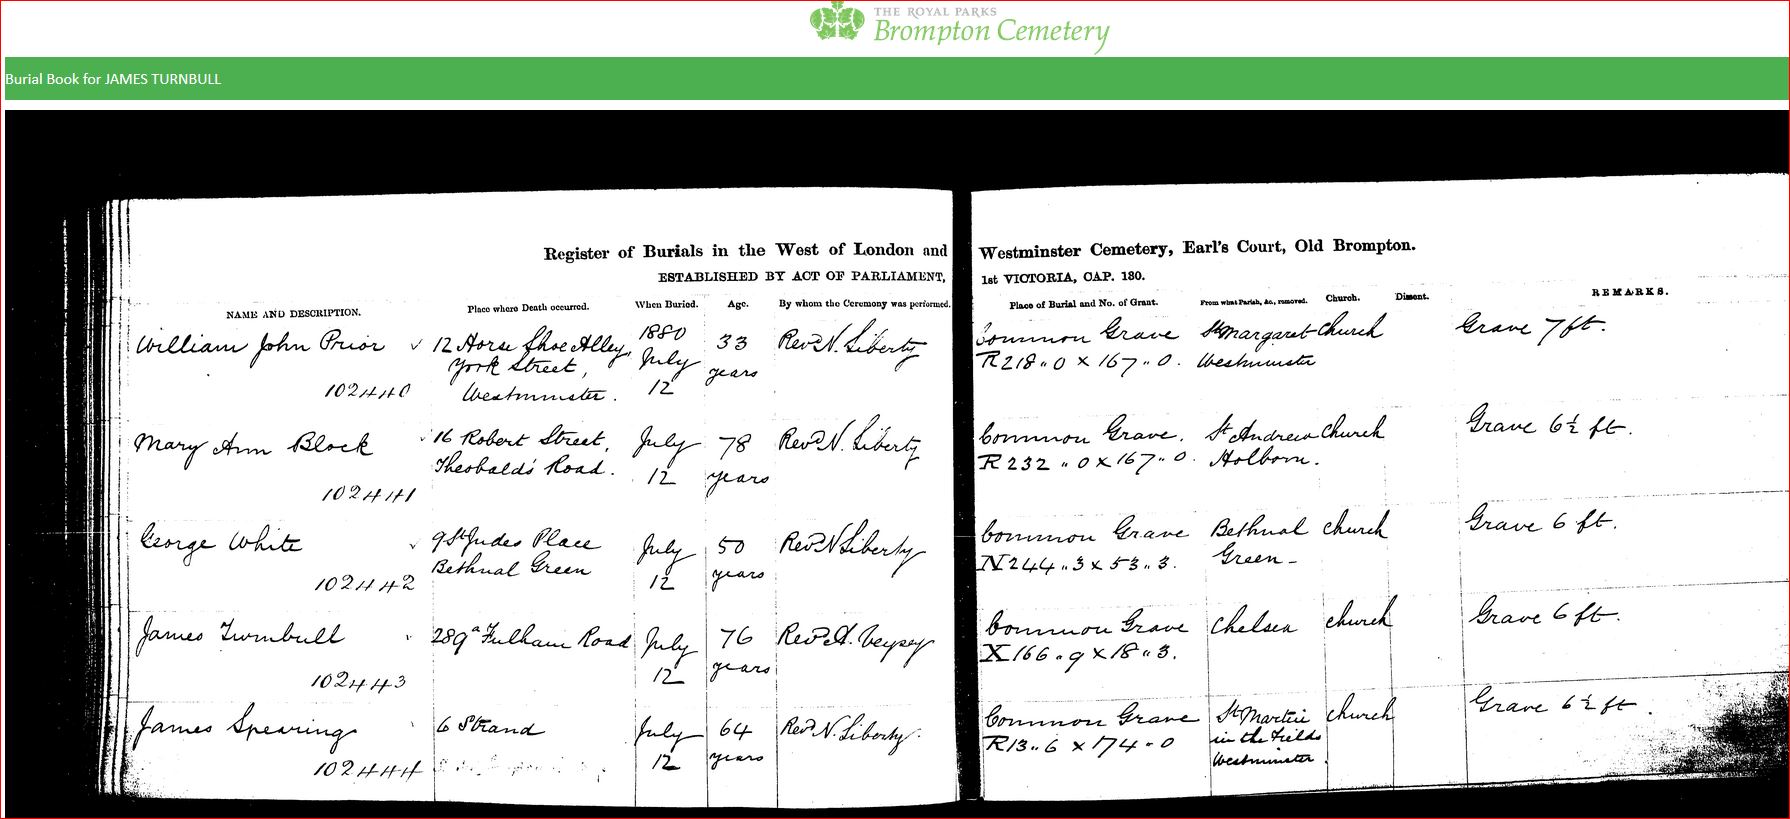 THE ROYAL PARKS
Brompton Cemetery
Burial Book for JAMES TURNBULL
Register of Burials in the West of London and Westminster Cemetery, Earl's Court, Old Brompton.
ESTABLISHED BY ACT OF PARLIAMENT, 1st VICTORIA, CAP. 130.
NAME AND DESCRIPTION. Place where Death occurred. When Buried. Age. By whom the Ceremony was performed. Place of Burial and No. of Grant. From what Parish, &c., removed. Church. Dissent. REMARKS.
William John Prior 12 Horse Shoe Alley, 1880 33 Revd N. Liberty Common Grave St Margaret Church Grave 7 ft.
York Street, July years R 218 " 0 x 167 " 0. Westminster
102440 Westminster. 12
Mary Ann Block 16 Robert Street, July 78 Revd N. Liberty Common Grave. St Andrew Church Grave 6½ ft.
Theobald's Road. 12 years R 232 " 0 x 167 " 0. Holborn.
102441
George White 9 St Judes Place July 50 Revd N Liberty Common Grave Bethnal Church Grave 6 ft.
Bethnal Green 12 years N 244 " 3 x 53 " 3. Green -
102442
James Turnbull 289a Fulham Road July 76 Revd A. Veysey Common Grave Chelsea Church Grave 6 ft.
12 years X 166 " 9 x 18 " 3.
102443
James Spearing 6 Strand July 64 Revd N. Liberty. Common Grave St Martin Church Grave 6½ ft.
12 years R 13 " 6 x 174 " 0 in the Fields
102444 Westminster.